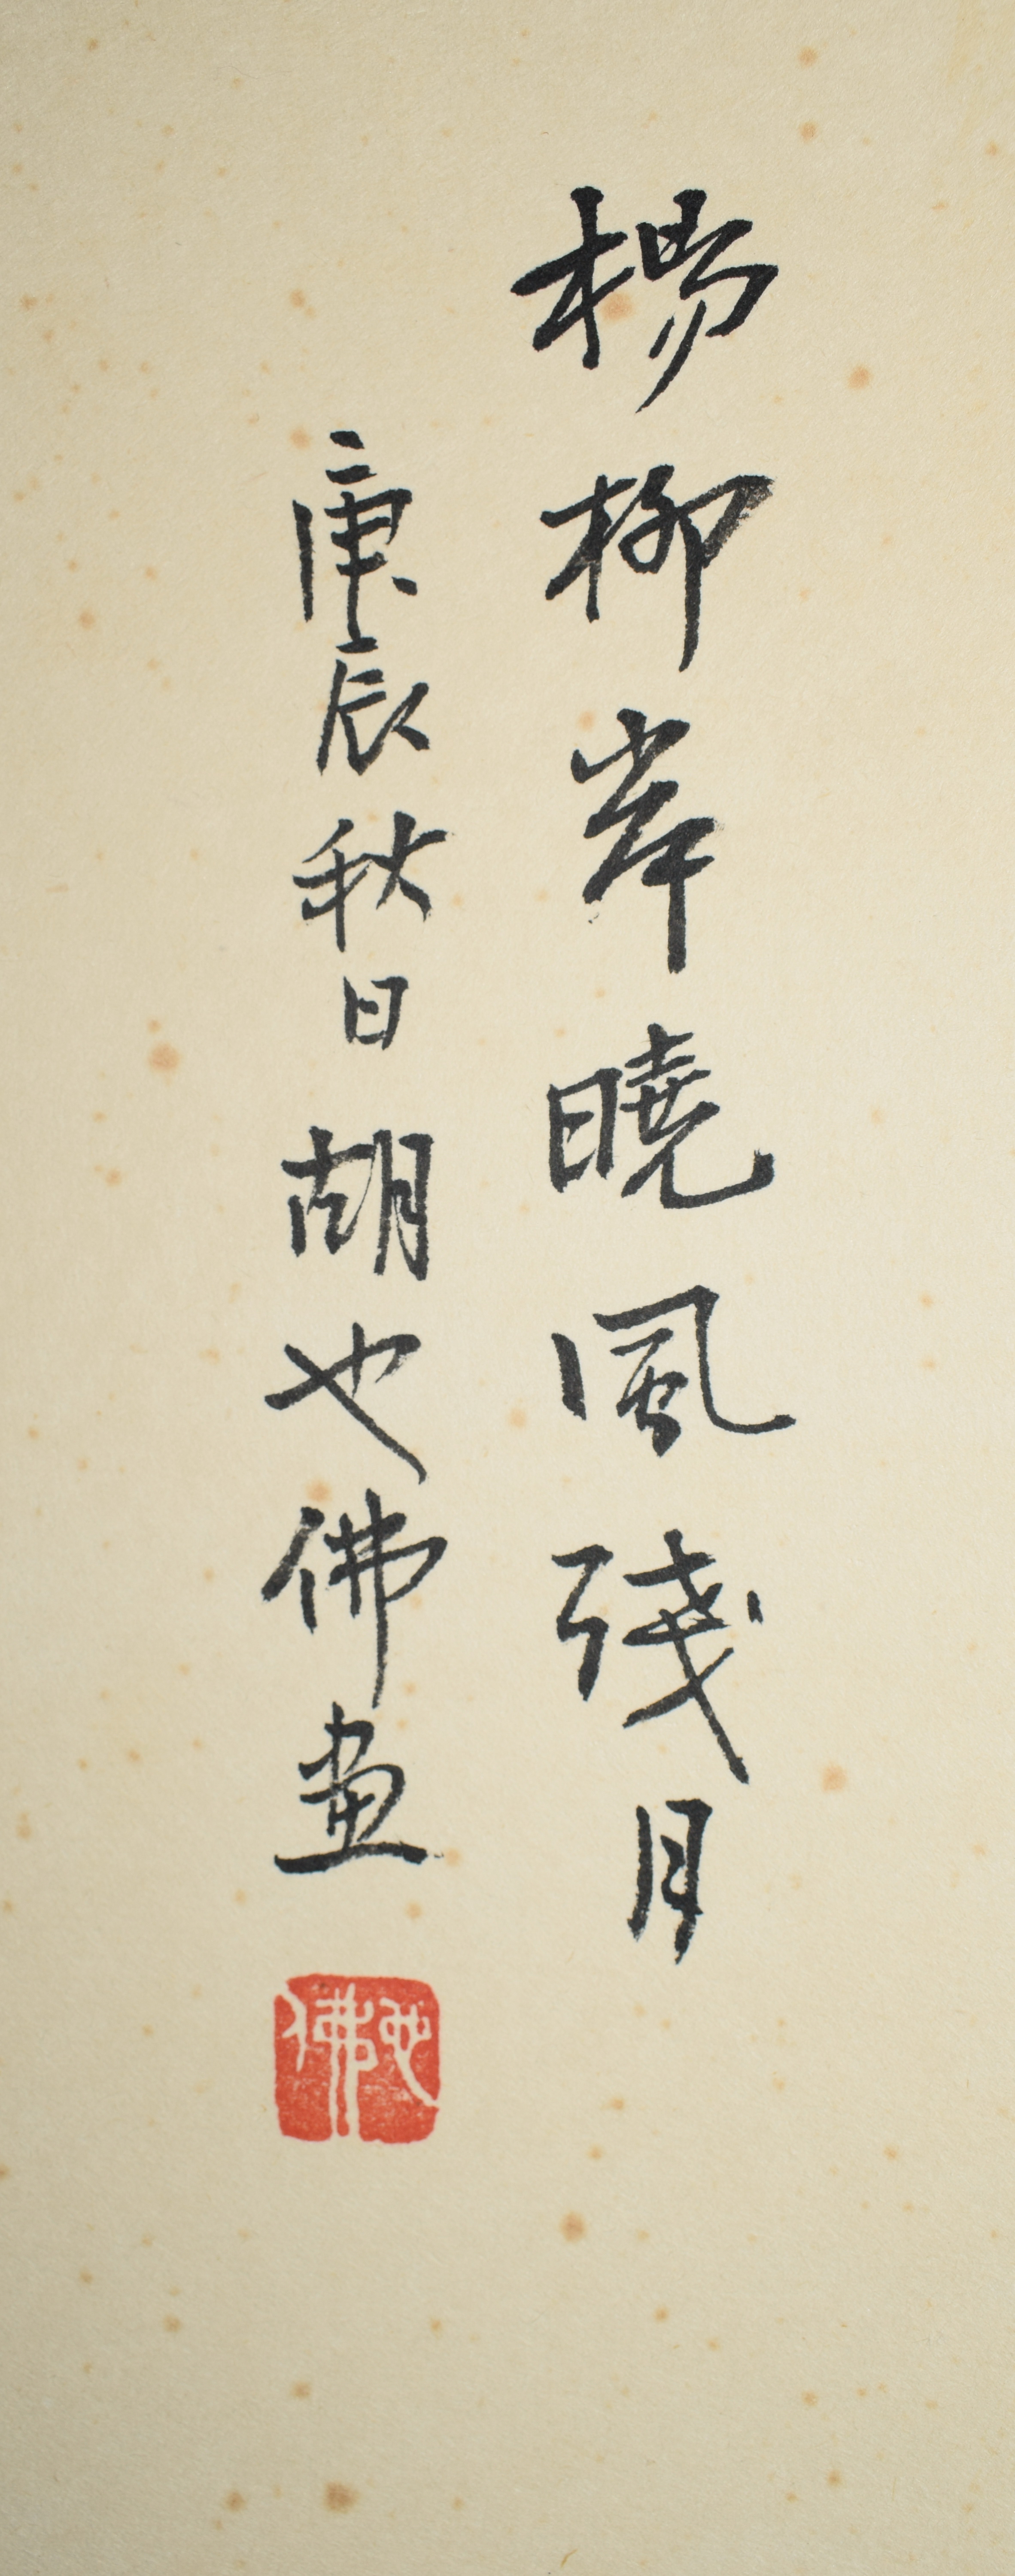 楊柳岸曉風殘月
庚辰秋日胡也佛畫
也佛